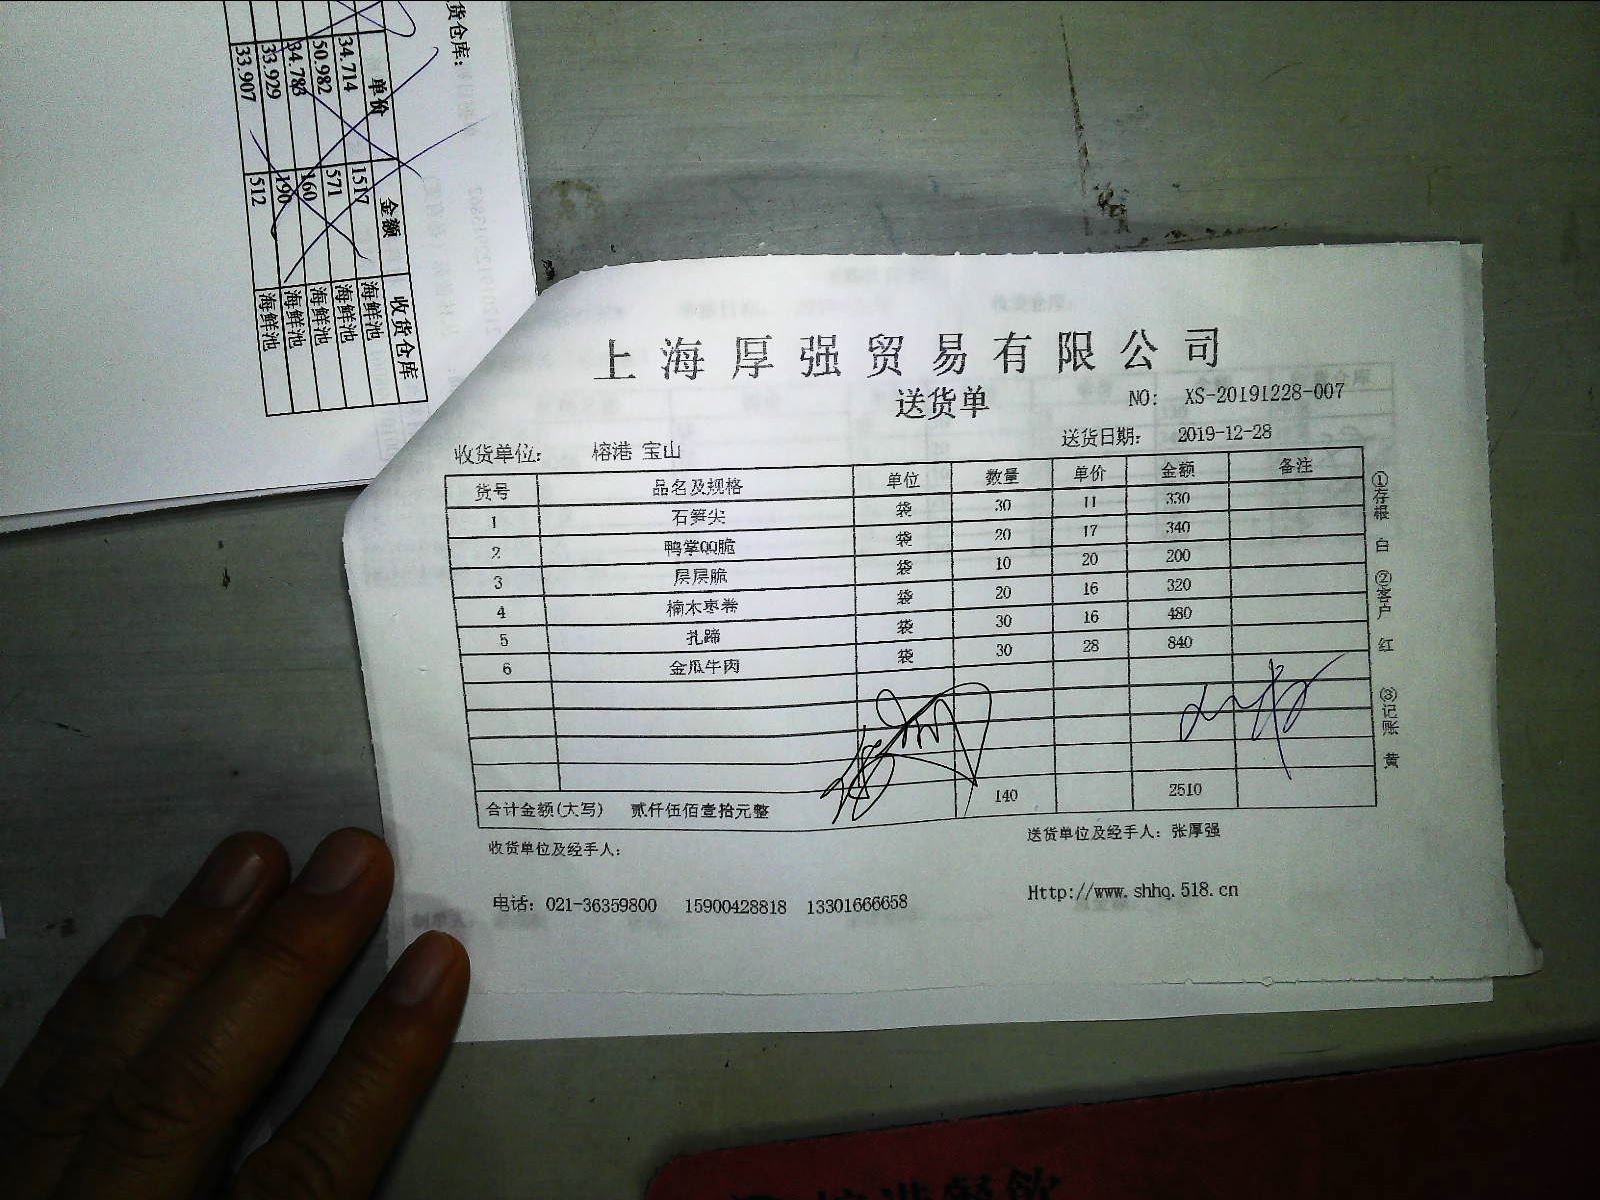 货仓库:
单价 金额 收货仓库
34.714 1517 海鲜池
50.982 571 海鲜池
34.783 160 海鲜池
33.929 190 海鲜池
33.907 512 海鲜池
上海厚强贸易有限公司
送货单
NO: XS-20191228-007
收货单位: 榕港 宝山
送货日期: 2019-12-28
货号 品名及规格 单位 数量 单价 金额 备注
1 石笋尖 袋 30 11 330
2 鸭掌QQ脆 袋 20 17 340
3 层层脆 袋 10 20 200
4 楠木枣卷 袋 20 16 320
5 扎蹄 袋 30 16 480
6 金瓜牛肉 袋 30 28 840
合计金额(大写) 贰仟伍佰壹拾元整 140 2510
收货单位及经手人:
送货单位及经手人: 张厚强
电话: 021-36359800 15900428818 13301666658
Http://www.shhq.518.cn
①存根 白 ②客户 红 ③记账 黄